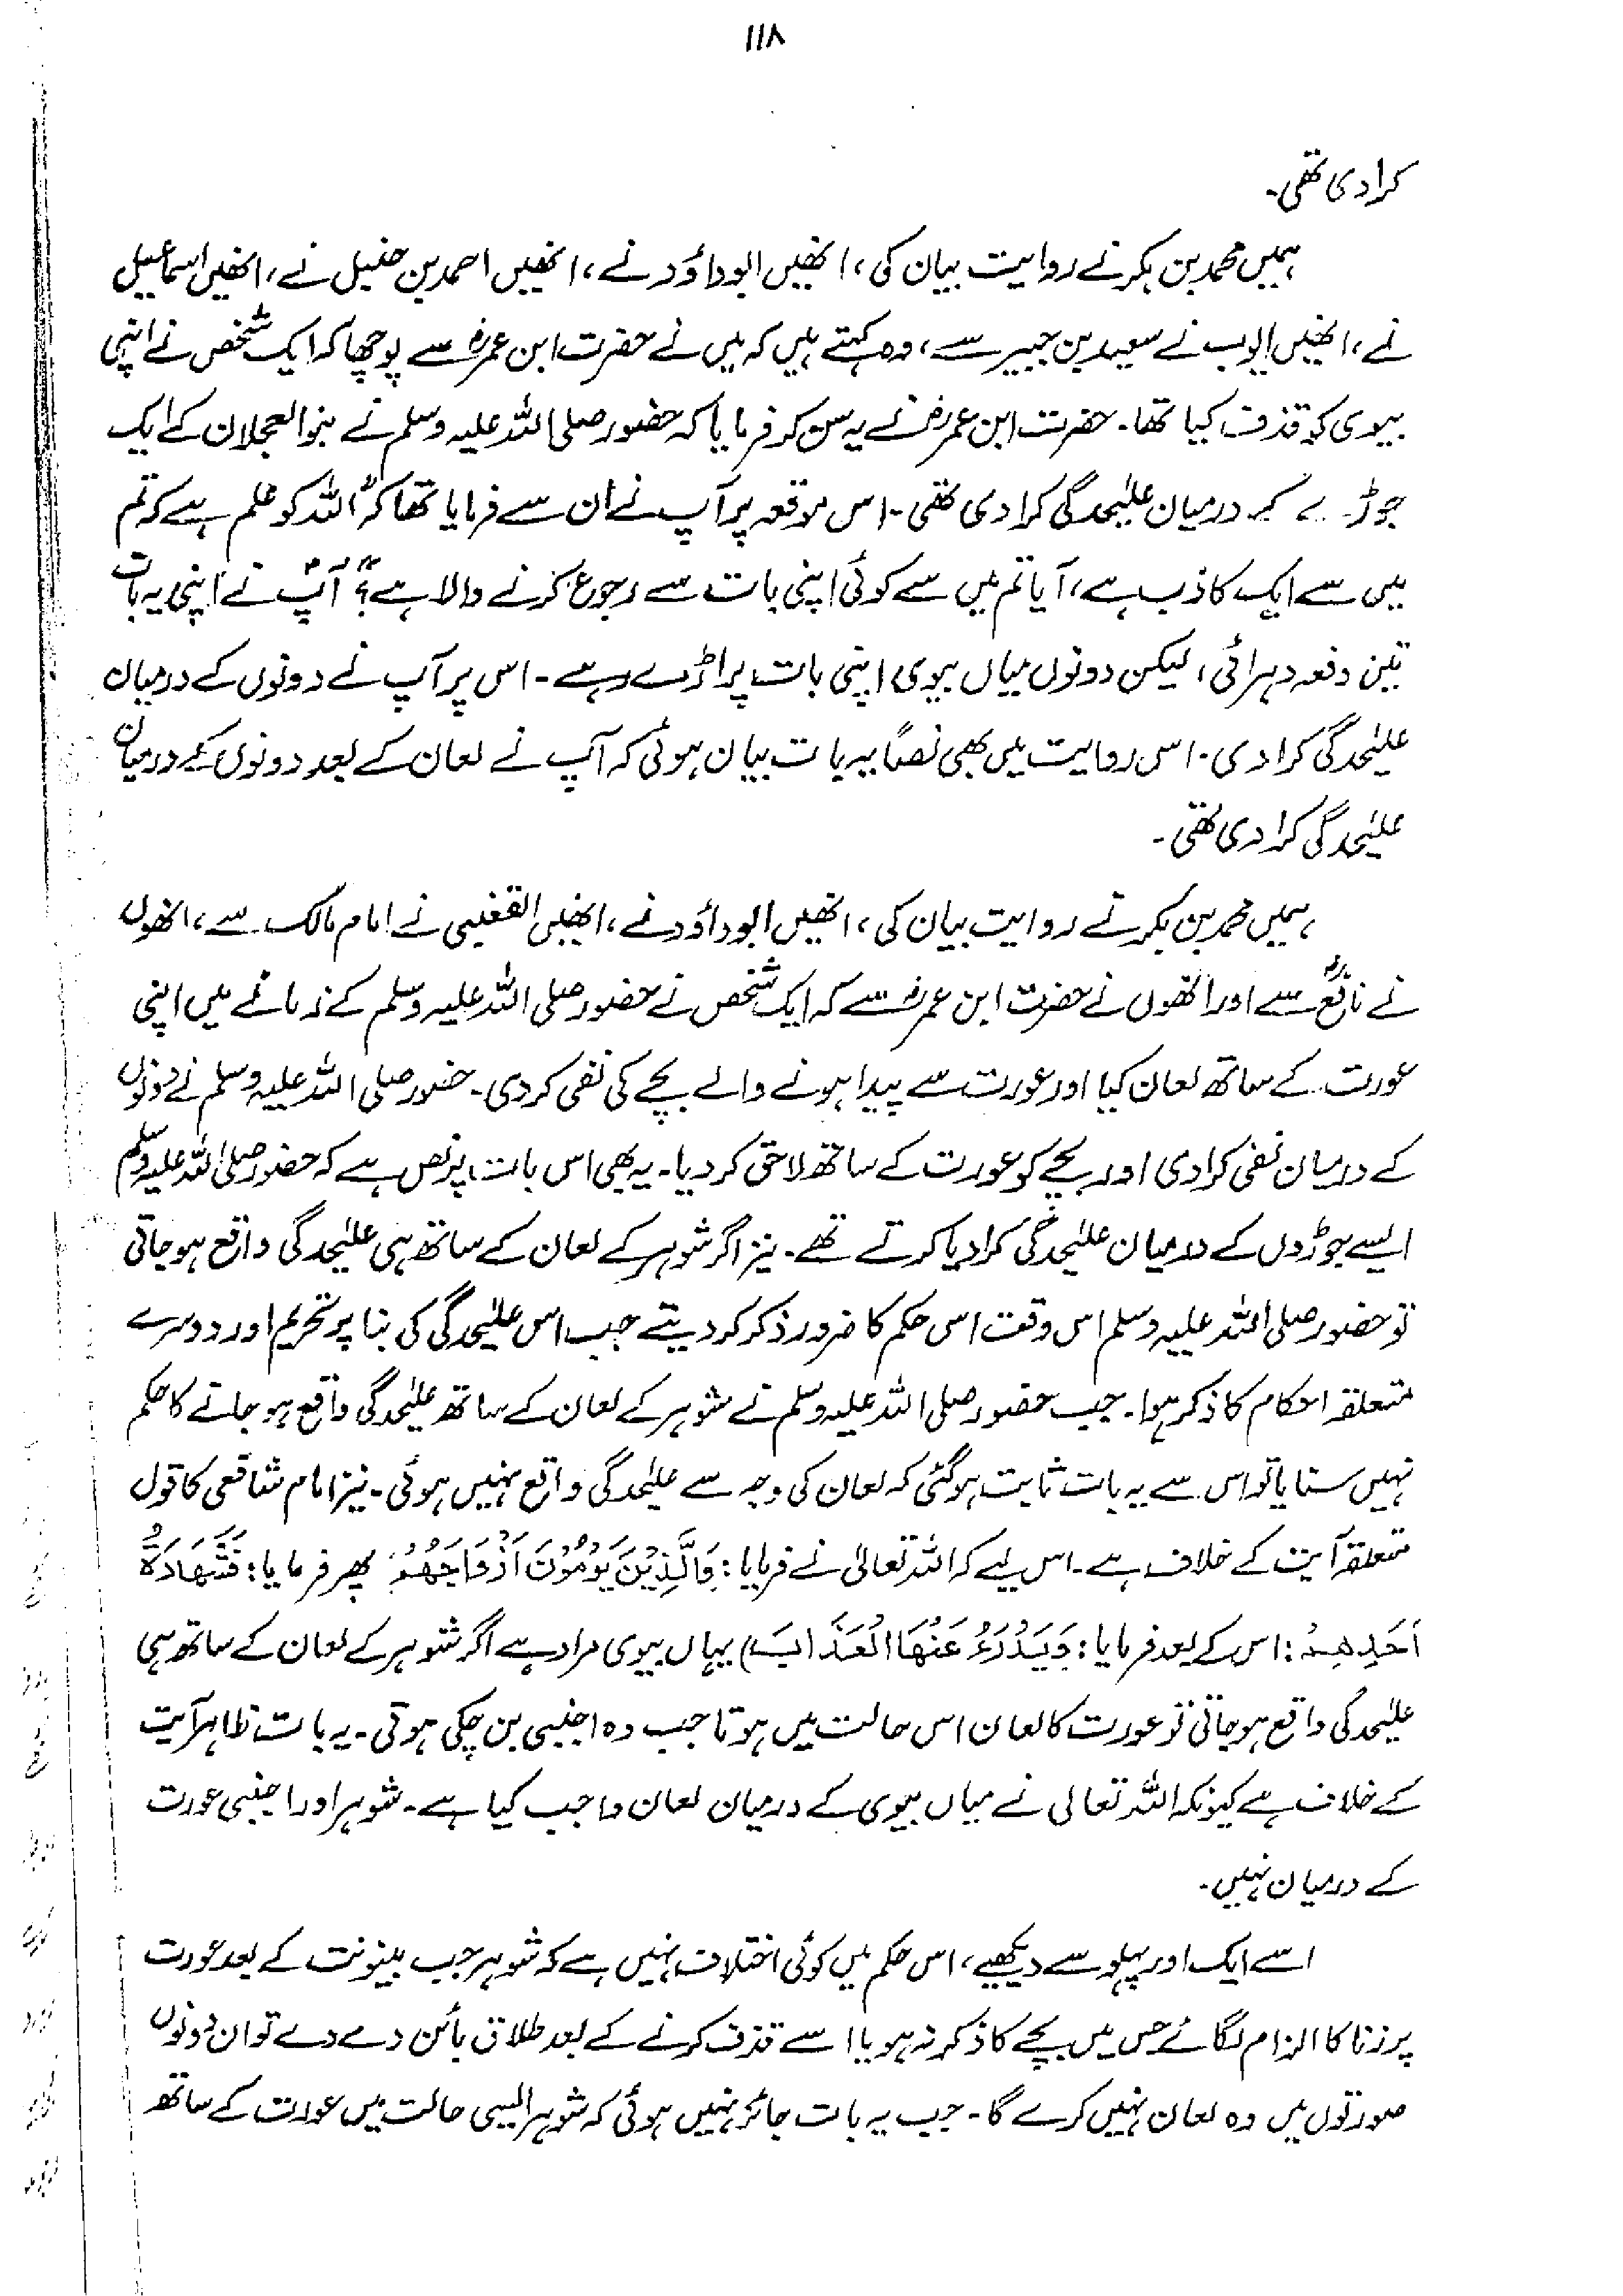 ۱۱۸
کرادی تھی۔
ہمیں محمد بن بکر نے روایت بیان کی، انھیں ابوداؤد نے، انھیں احمد بن حنبل نے، انھیں اسماعیل
نے، انھیں ایوب نے سعید بن جبیر سے، وہ کہتے ہیں کہ میں نے حضرت ابن عمرؓ سے پوچھا کہ ایک شخص نے اپنی
بیوی کو قذف کیا تھا۔ حضرت ابن عمرؓ نے یہ سن کر فرمایا کہ حضور صلی اللہ علیہ وسلم نے بنو العجلان کے ایک
جوڑے کے درمیان علیٰحدگی کرا دی تھی۔ اس موقعہ پر آپ نے ان سے فرمایا تھا کہ "اللہ کو علم ہے کہ تم
میں سے ایک کاذب ہے، آیا تم میں سے کوئی اپنی بات سے رجوع کرنے والا ہے؟" آپؐ نے اپنی یہ بات
تین دفعہ دہرائی، لیکن دونوں میاں بیوی اپنی بات پر اڑے رہے۔ اس پر آپ نے دونوں کے درمیان
علیٰحدگی کرا دی۔ اس روایت میں بھی نصاً یہ بات بیان ہوئی کہ آپ نے لعان کے بعد دونوں کے درمیان
علیٰحدگی کرا دی تھی۔
ہمیں محمد بن بکر نے روایت بیان کی، انھیں ابوداؤد نے، انھیں القعنبی نے امام مالک سے، انھوں
نے نافعؒ سے اور انھوں نے حضرت ابن عمرؓ سے کہ ایک شخص نے حضور صلی اللہ علیہ وسلم کے زمانے میں اپنی
عورت کے ساتھ لعان کیا اور عورت سے پیدا ہونے والے بچے کی نفی کر دی۔ حضور صلی اللہ علیہ وسلم نے دونوں
کے درمیان نفی کرا دی اور بچے کو عورت کے ساتھ لاحق کر دیا۔ یہ بھی اس بات پر نص ہے کہ حضور صلی اللہ علیہ وسلم
ایسے جوڑوں کے درمیان علیٰحدگی کرا دیا کرتے تھے۔ نیز اگر شوہر کے لعان کے ساتھ ہی علیٰحدگی واقع ہو جاتی
تو حضور صلی اللہ علیہ وسلم اس وقت اس حکم کا ضرور ذکر کر دیتے جب اس علیٰحدگی کی بنا پر تحریم اور دوسرے
متعلقہ احکام کا ذکر ہوا۔ جب حضور صلی اللہ علیہ وسلم نے شوہر کے لعان کے ساتھ علیٰحدگی واقع ہو جانے کا حکم
نہیں سنایا تو اس سے یہ بات ثابت ہو گئی کہ لعان کی وجہ سے علیٰحدگی واقع نہیں ہوئی۔ نیز امام شافعی کا قول
متعلقہ آیت کے خلاف ہے۔ اس لیے کہ اللہ تعالیٰ نے فرمایا: وَالَّذِیْنَ یَرْمُوْنَ اَزْوَاجَھُمْ پھر فرمایا: فَشَھَادَۃُ
اَحَدِھِمْ: اس کے بعد فرمایا: وَیَدْرَءُ عَنْھَا الْعَذَابَ) یہاں بیوی مراد ہے اگر شوہر کے لعان کے ساتھ ہی
علیٰحدگی واقع ہو جاتی تو عورت کا لعان اس حالت میں ہوتا جب وہ اجنبی بن چکی ہوتی۔ یہ بات ظاہر آیت
کے خلاف ہے کیونکہ اللہ تعالیٰ نے میاں بیوی کے درمیان لعان واجب کیا ہے۔ شوہر اور اجنبی عورت
کے درمیان نہیں۔
اسے ایک اور پہلو سے دیکھیے، اس حکم میں کوئی اختلاف نہیں ہے کہ شوہر جب بینونت کے بعد عورت
پر زنا کا الزام لگائے جس میں بچے کا ذکر نہ ہو یا اسے قذف کرنے کے بعد طلاق بائن دے دے تو ان دونوں
صورتوں میں وہ لعان نہیں کرے گا۔ جب یہ بات جائز نہیں ہوئی کہ شوہر ایسی حالت میں عورت کے ساتھ